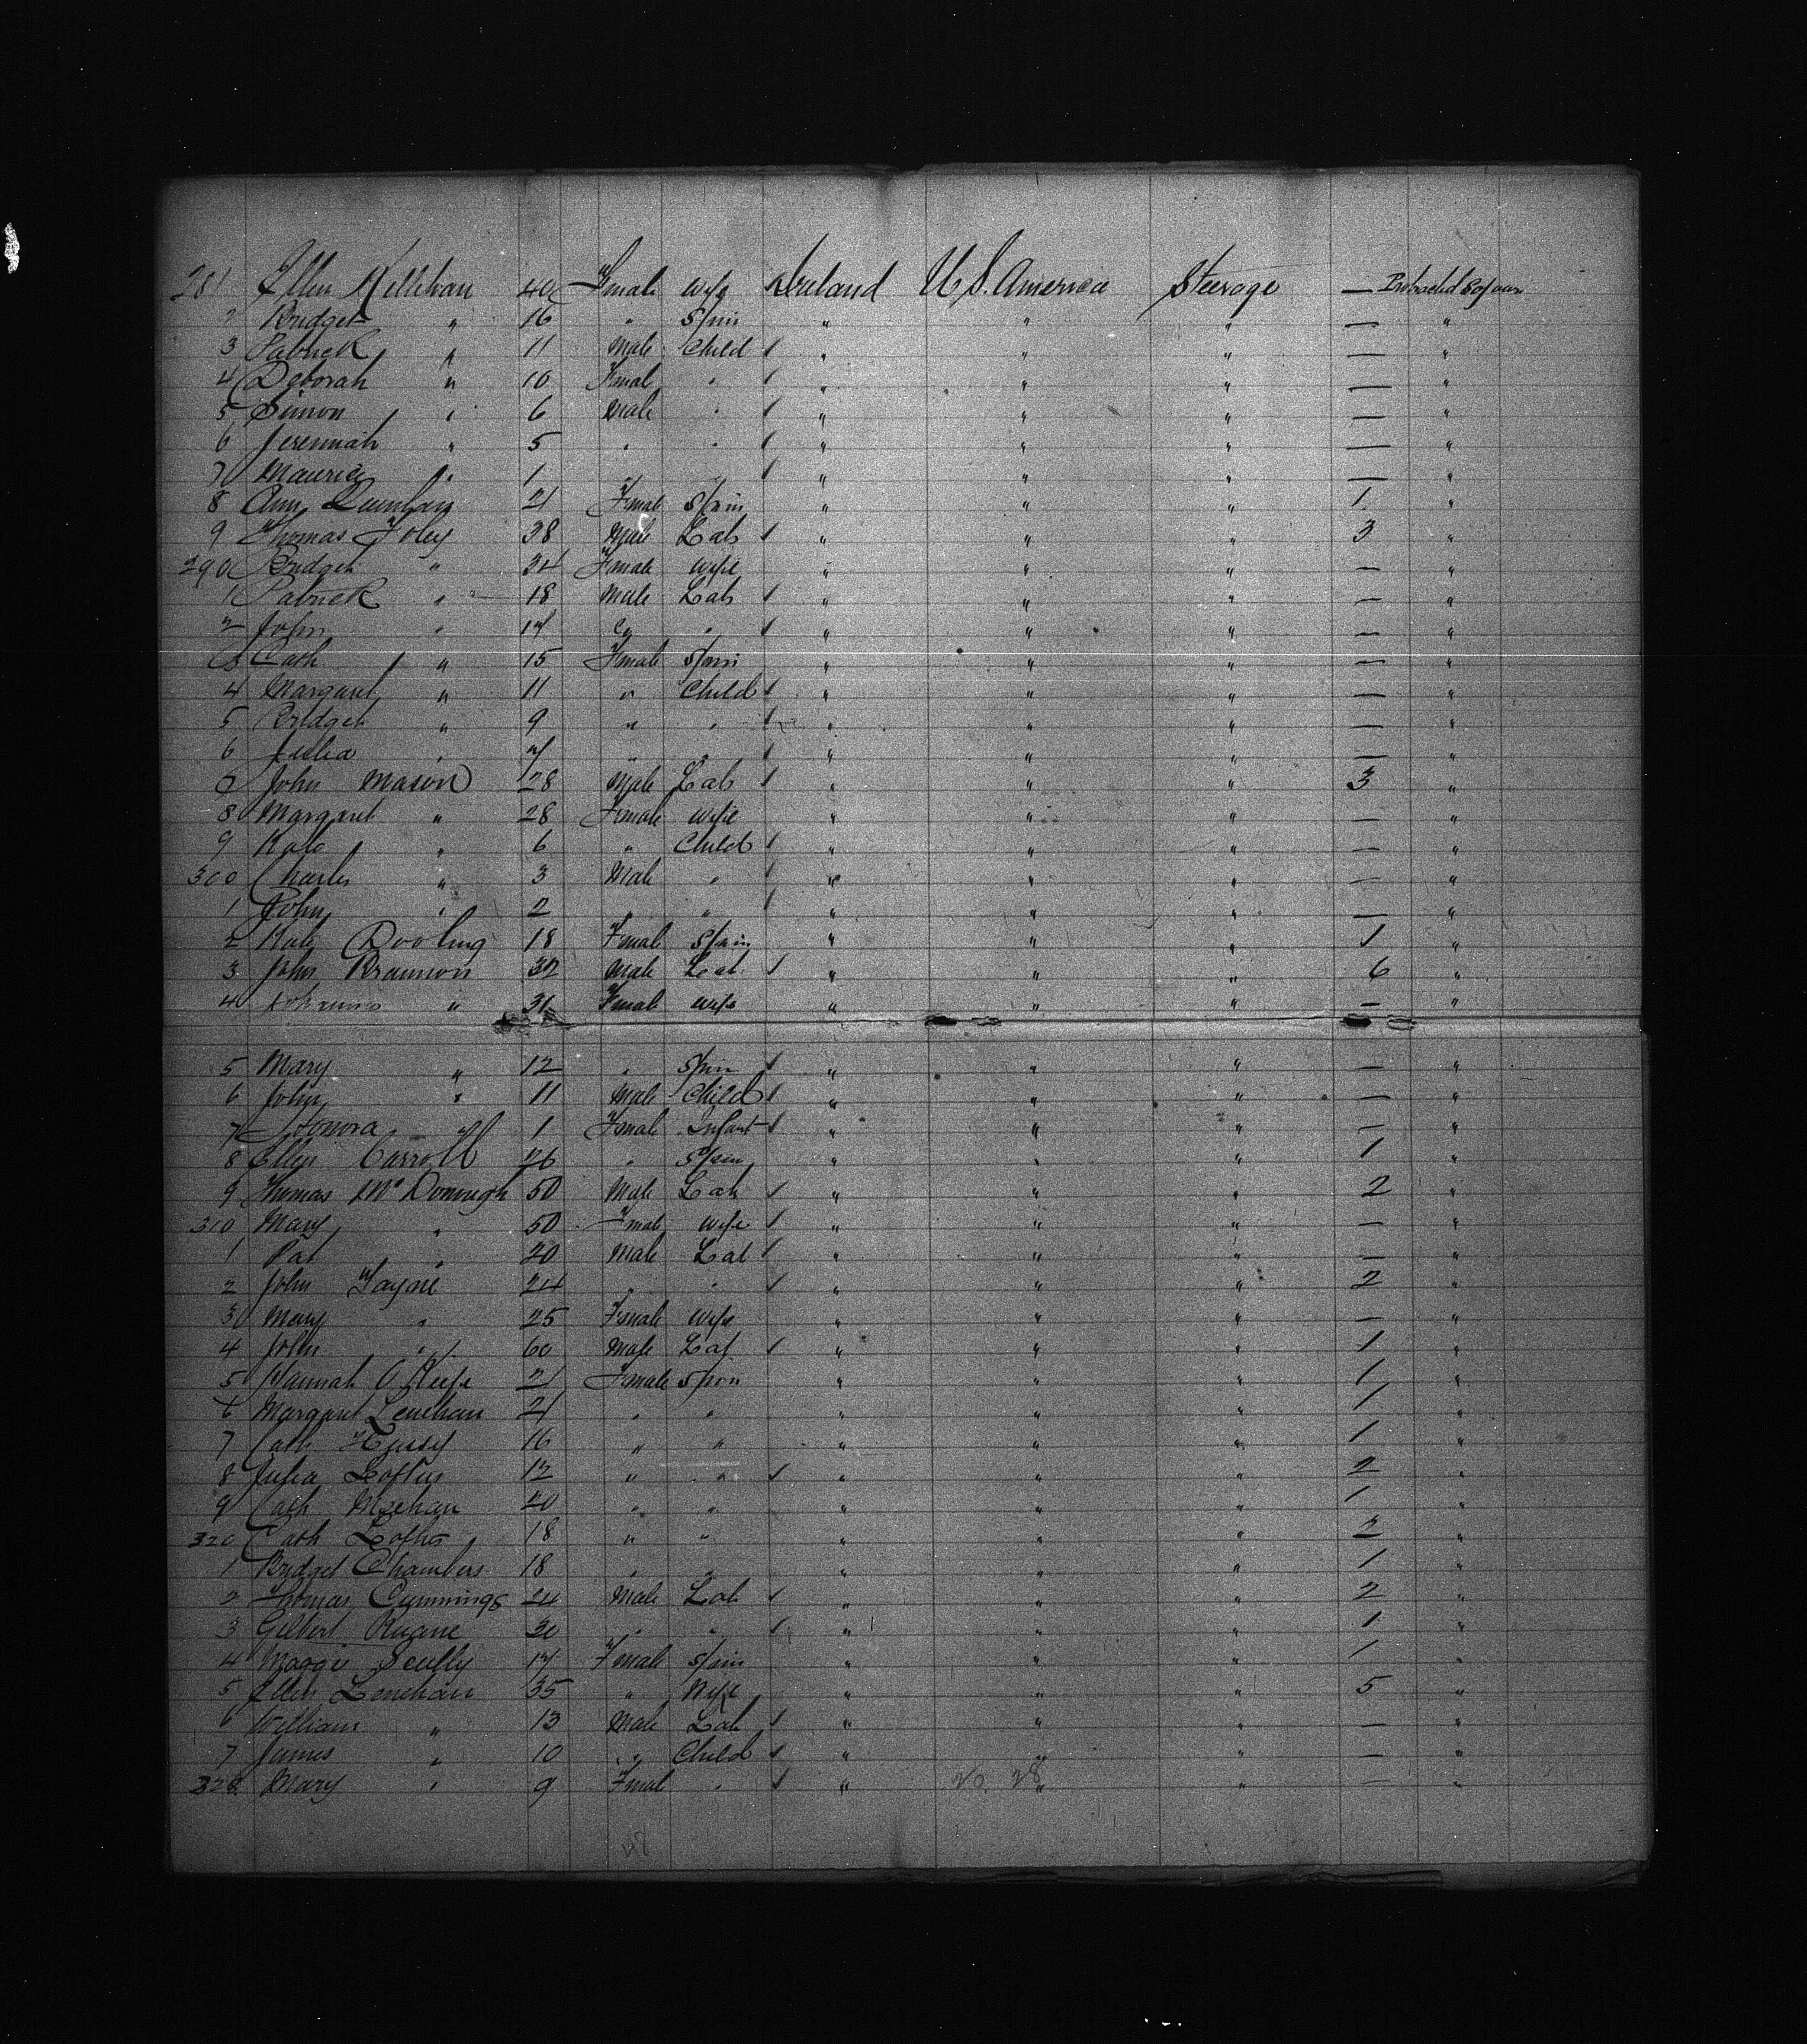 281 Ellen Kellehan 40 Female Wife Ireland U S. America Steerage — Protracted Sojourn
2 Bridget " 16 " Spin " " " — "
3 Patrick " 11 Male Child / " " " — "
4 Deborah " 10 Female " / " " " — "
5 Simon " 6 Male " / " " " — "
6 Jeremiah " 5 " " / " " " — "
7 Maurice " 1 " " / " " " — "
8 Ann 21 Female Spin " " " 1 "
9 Thomas Foley 38 Male Lab / " " " 3 "
290 Bridget " 34 Female Wife " " " — "
1 Patrick " 18 Male Lab / " " " — "
2 John " 17 " " / " " " — "
3 Cath " 15 Female Spin " " " — "
4 Margaret " 11 " Child / " " " — "
5 Bridget " 9 " " / " " " — "
6 Julia " 7 " " / " " " — "
7 John Mason 28 Male Lab / " " " 3 "
8 Margaret " 28 Female Wife " " " — "
9 Kate " 6 " Child / " " " — "
300 Charles " 3 Male " / " " " — "
1 John " 2 " " / " " " — "
2 Kate Dooling 18 Female Spin " " " 1 "
3 John Brannon 32 Male Lab / " " " 6 "
4 Johanna " 31 Female Wife " " " — "
5 Mary " 12 " Spin / " " " — "
6 John " 11 Male Child / " " " — "
7 Honora " 1 Female Infant / " " " — "
8 Ellen Carroll 26 " Spin " " " 1 "
9 Thomas McDonough 50 Male Lab / " " " 2 "
310 Mary " 50 Female Wife / " " " — "
1 Pat " 20 Male Lab / " " " — "
2 John 24 " " / " " " 2 "
3 Mary " 25 Female Wife " " " — "
4 John " 60 Male Lab / " " " 1 "
5 Hannah O'Keefe 21 Female Spin " " " 1 "
6 Margaret Lenehan 21 " " " " " 1 "
7 Cath 16 " " " " " 1 "
8 Julia Loftus 12 " " / " " " 2 "
9 Cath Meehan 20 " " " " " 1 "
320 Cath Loftus 18 " " " " " 2 "
1 Bridget Chambers 18 " " " " " 1 "
2 Thomas Cummings 24 Male Lab / " " " 2 "
3 Gilbert Ruane 30 " " / " " " 1 "
4 Maggie Scully 17 Female Spin " " " 1 "
5 Ellen Lenehan 35 " Wife " " " 5 "
6 William " 13 Male Lab / " " " — "
7 James " 10 " Child / " " " — "
328 Mary " 9 Female " / " 20. 28 " " — "
48